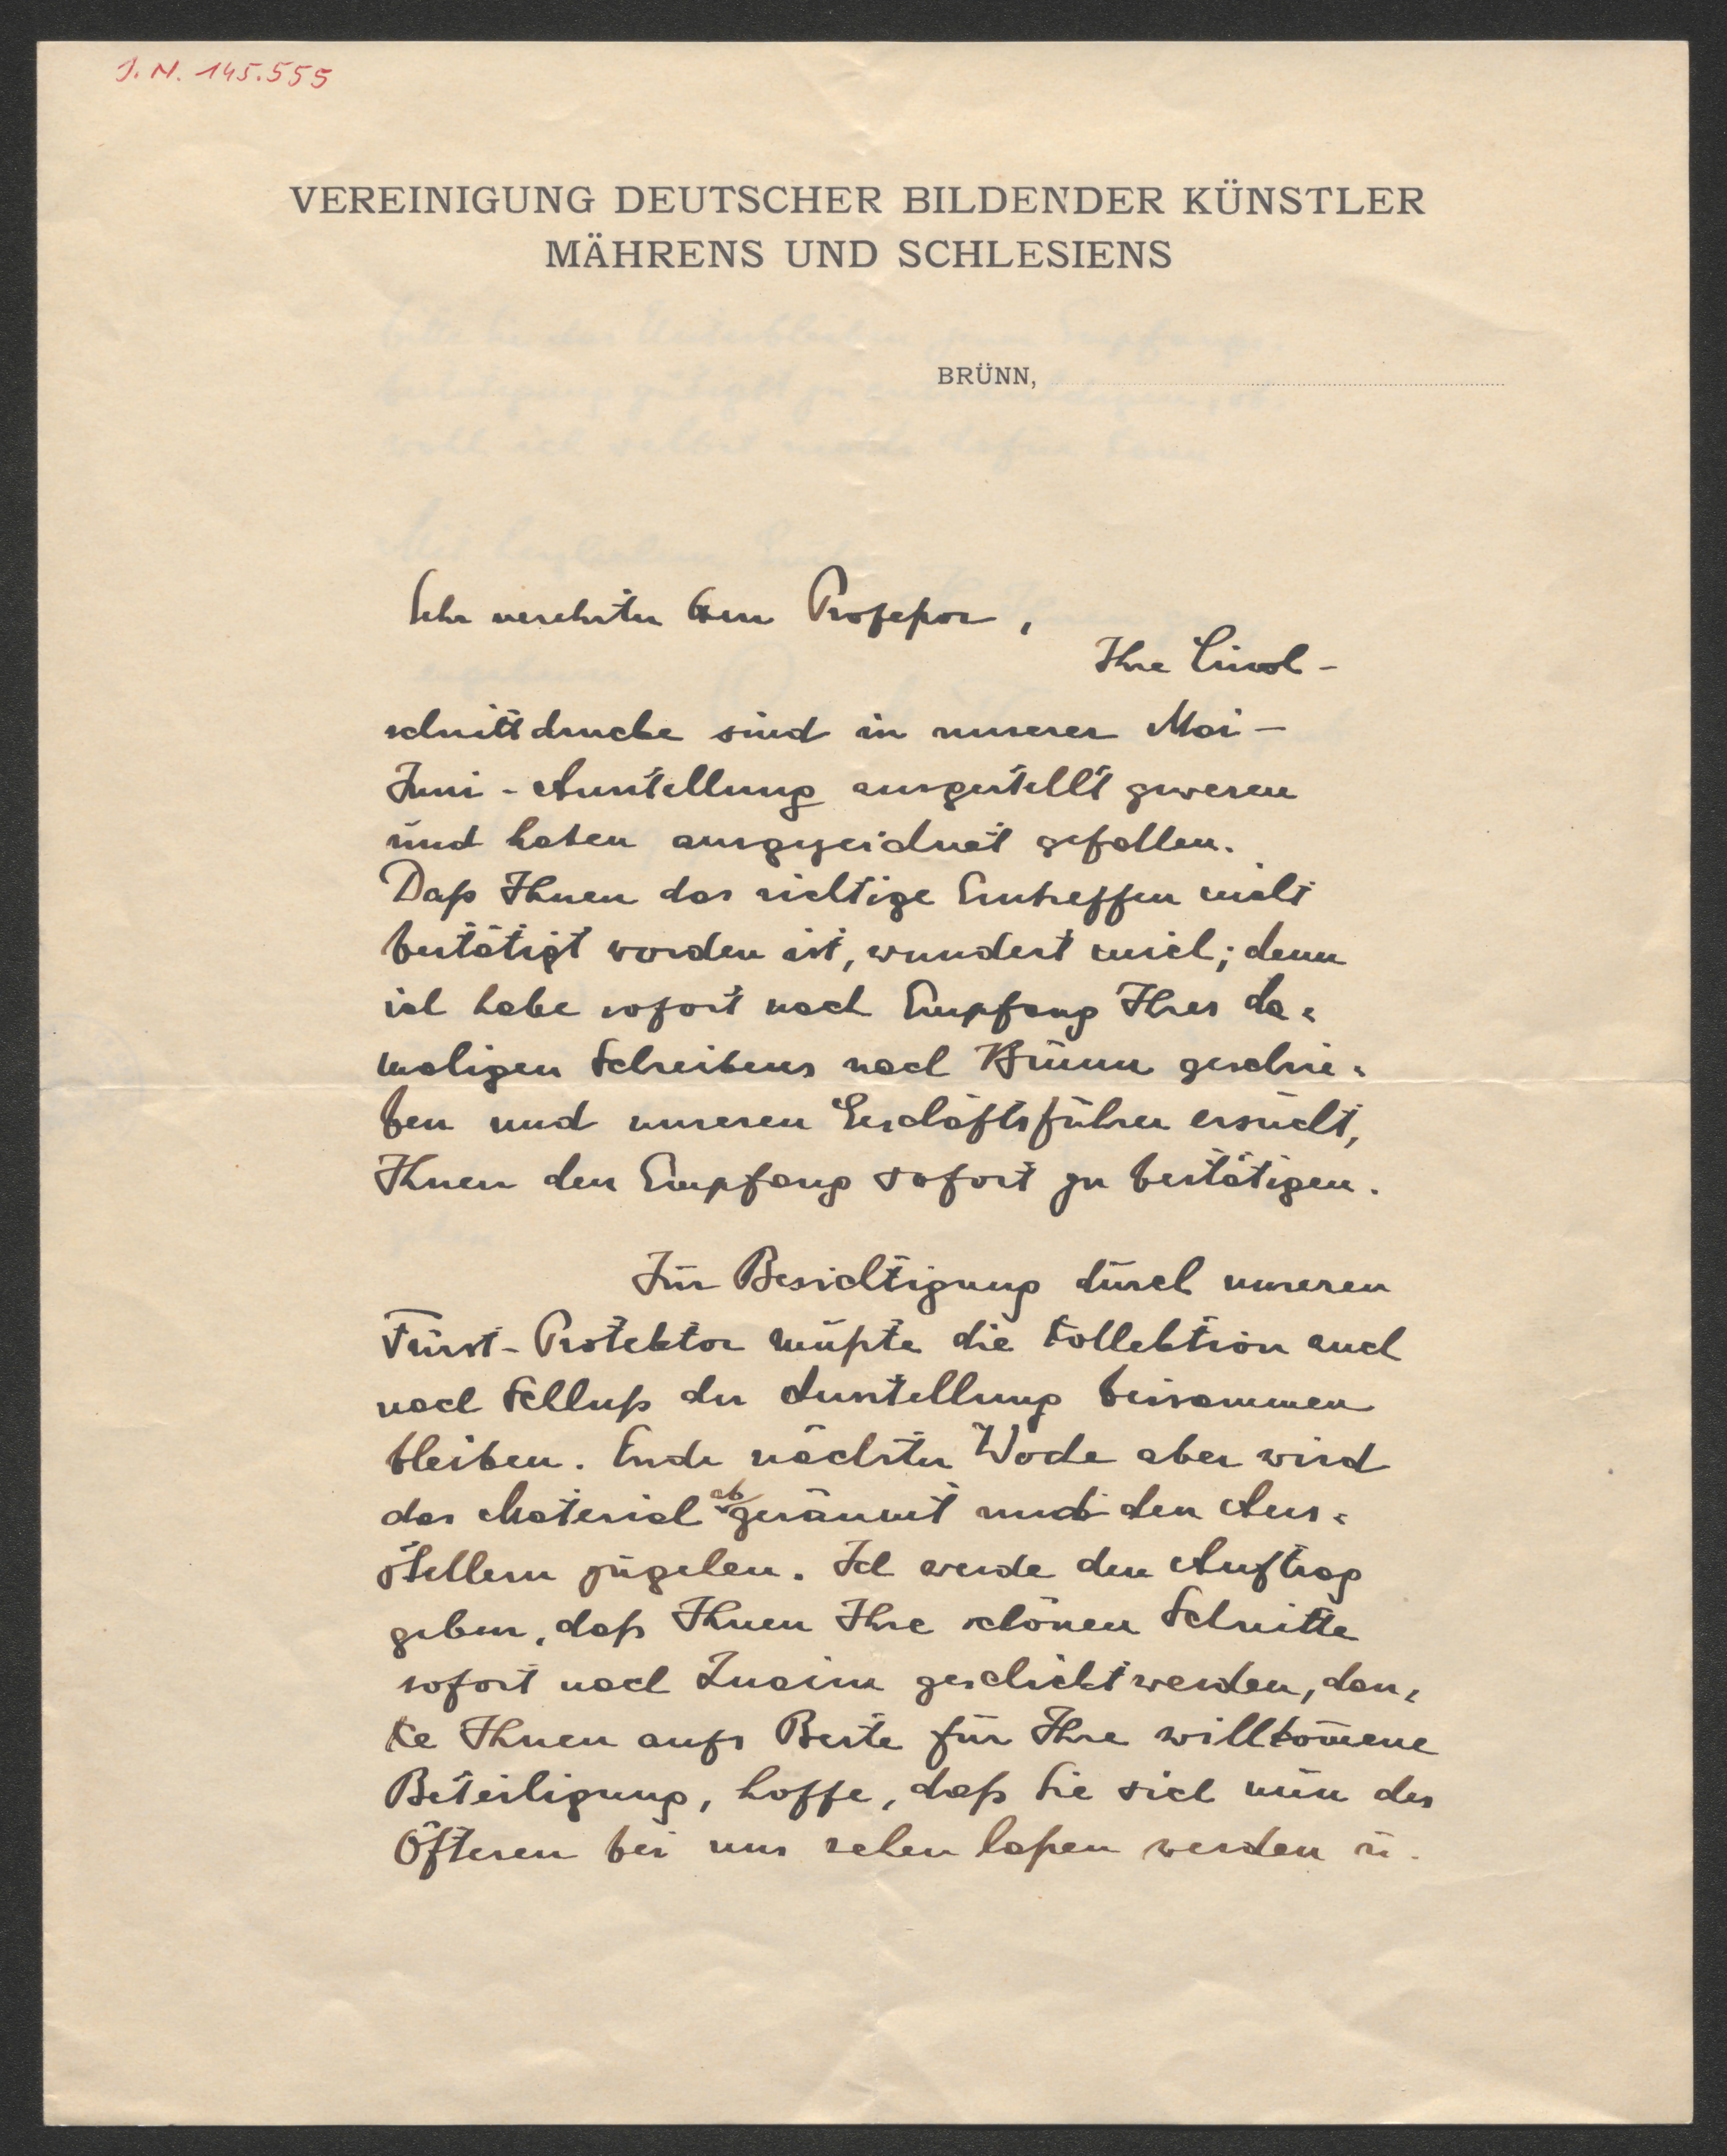 J. N. 145.555
VEREINIGUNG DEUTSCHER BILDENDER KÜNSTLER
MÄHRENS UND SCHLESIENS
BRÜNN,
Sehr verehrter Herr Professor,
Ihre Linol-
schnittdrucke sind in unserer Mai-
Juni-Ausstellung ausgestellt gewesen
und haben ausgezeichnet gefallen.
Daß Ihnen das richtige Eintreffen nicht
bestätigt worden ist, wundert mich; denn
ich habe sofort nach Empfang Ihres da-
maligen Schreibens nach Brünn geschrie-
ben und unseren Geschäftsführer ersucht,
Ihnen den Empfang sofort zu bestätigen.
Für Besichtigung durch unseren
Fürst-Protektor mußte die Kollektion auch
nach Schluß der Ausstellung beisammen
bleiben. Ende nächster Woche aber wird
das Material abgeräumt und den Aus-
stellern zugehen. Ich werde den Auftrag
geben, daß Ihnen Ihre schönen Schnitte
sofort nach Znaim geschickt werden, dan-
ke Ihnen aufs Beste für Ihre willkom̄ene
Beteiligung, hoffe, daß Sie sich nun des
Öfteren bei uns sehen laßen werden u.